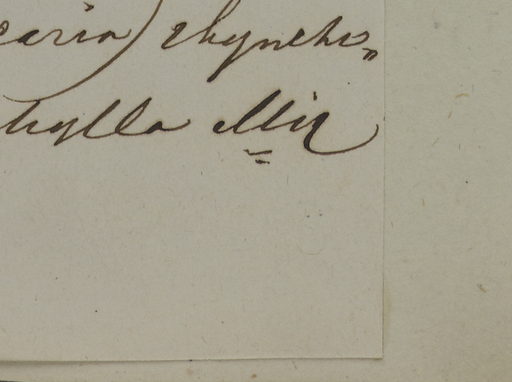 caria) rhyncho„
phylla Mig